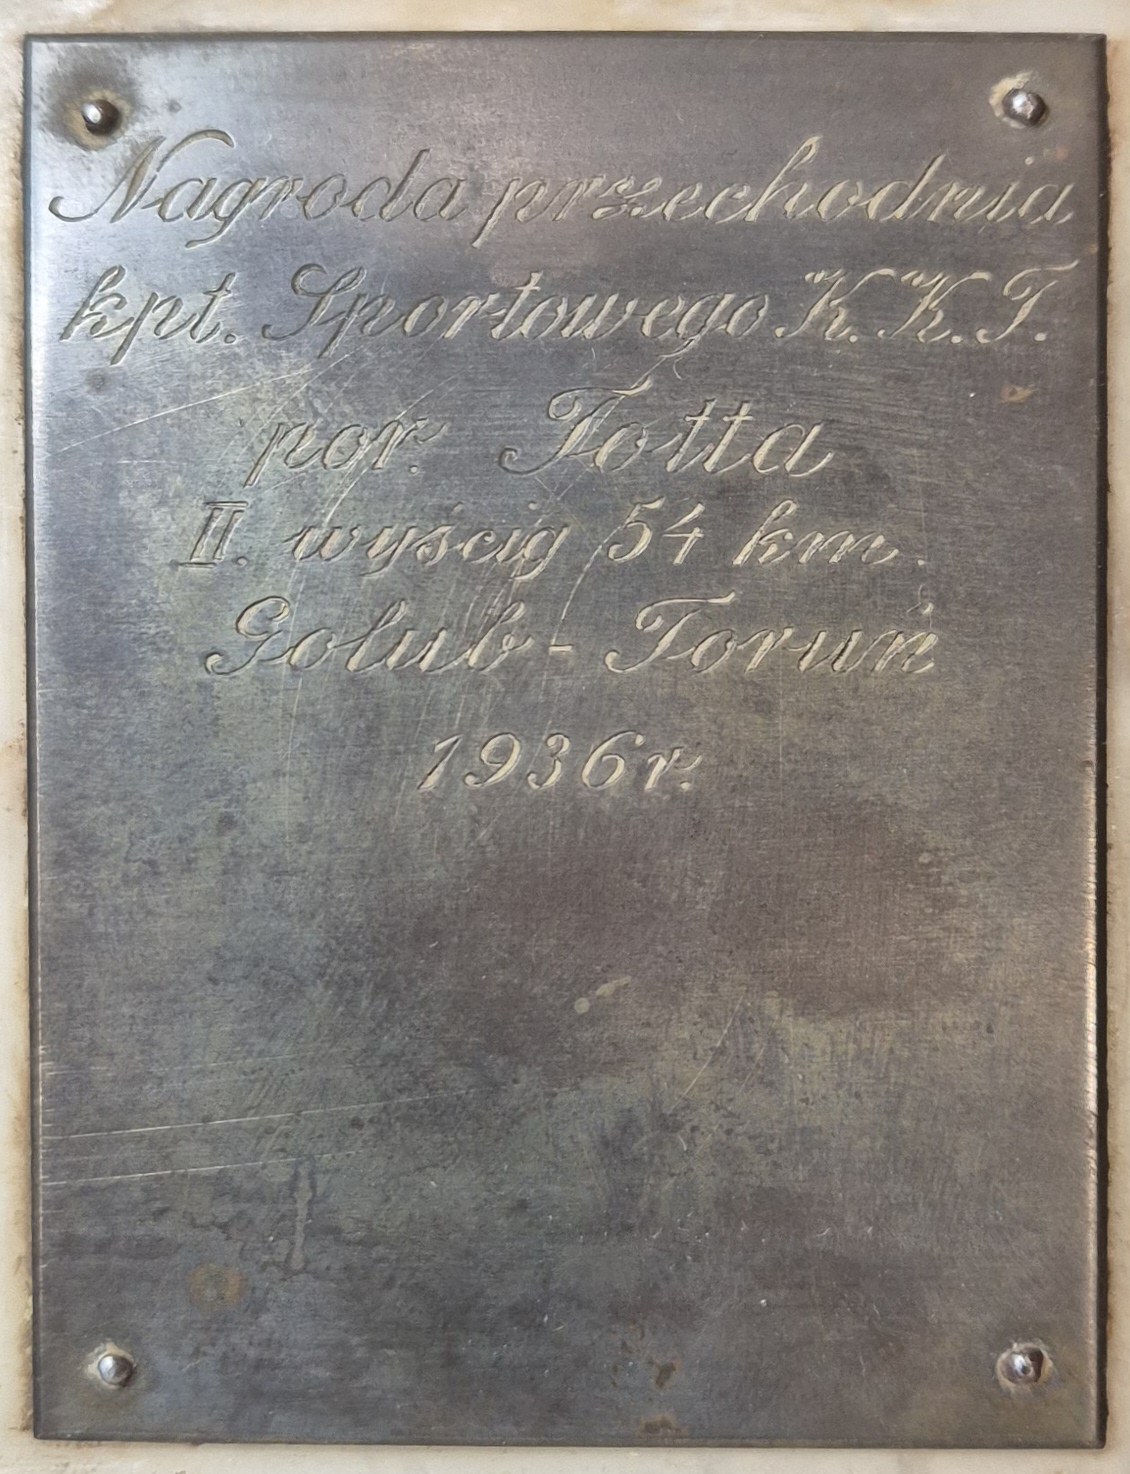 Nagroda przechodnia
kpt. Sportowego K. K. T.
por. Totta
II. wyścig 54 km.
Golub - Toruń
1936 r.